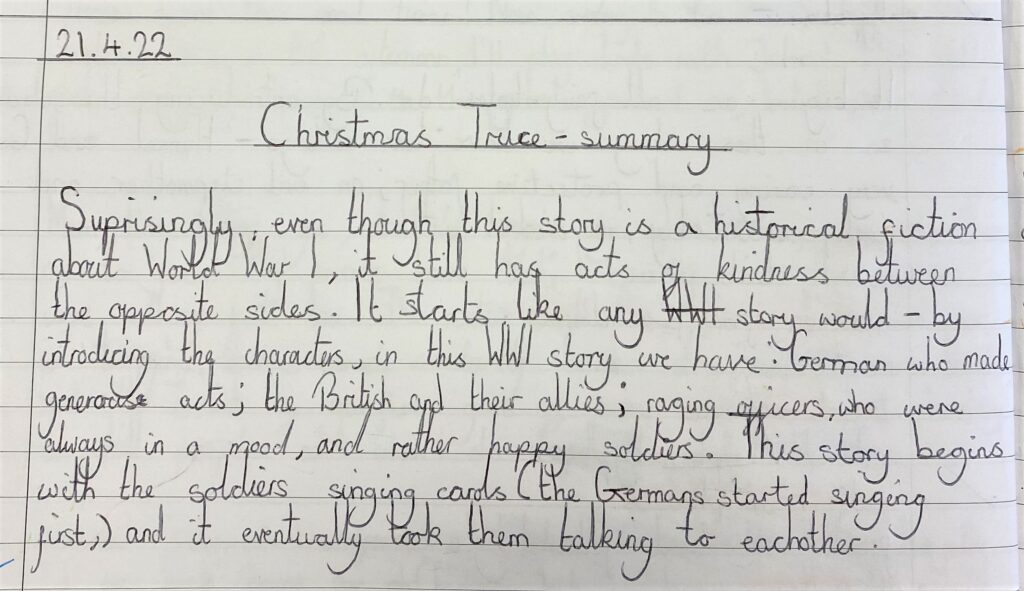 21.4.22
Christmas Truce - summary
Suprisingly, even though this story is a historical fiction
about World War 1, it still has acts of kindness between
the opposite sides. It starts like any story would - by
introducing the characters, in this WWI story we have: German who made
generous acts; the British and their allies; raging officers, who were
always in a mood, and rather happy soldiers. This story begins
with the soldiers singing carols (the Germans started singing
first,) and it eventually took them talking to eachother.